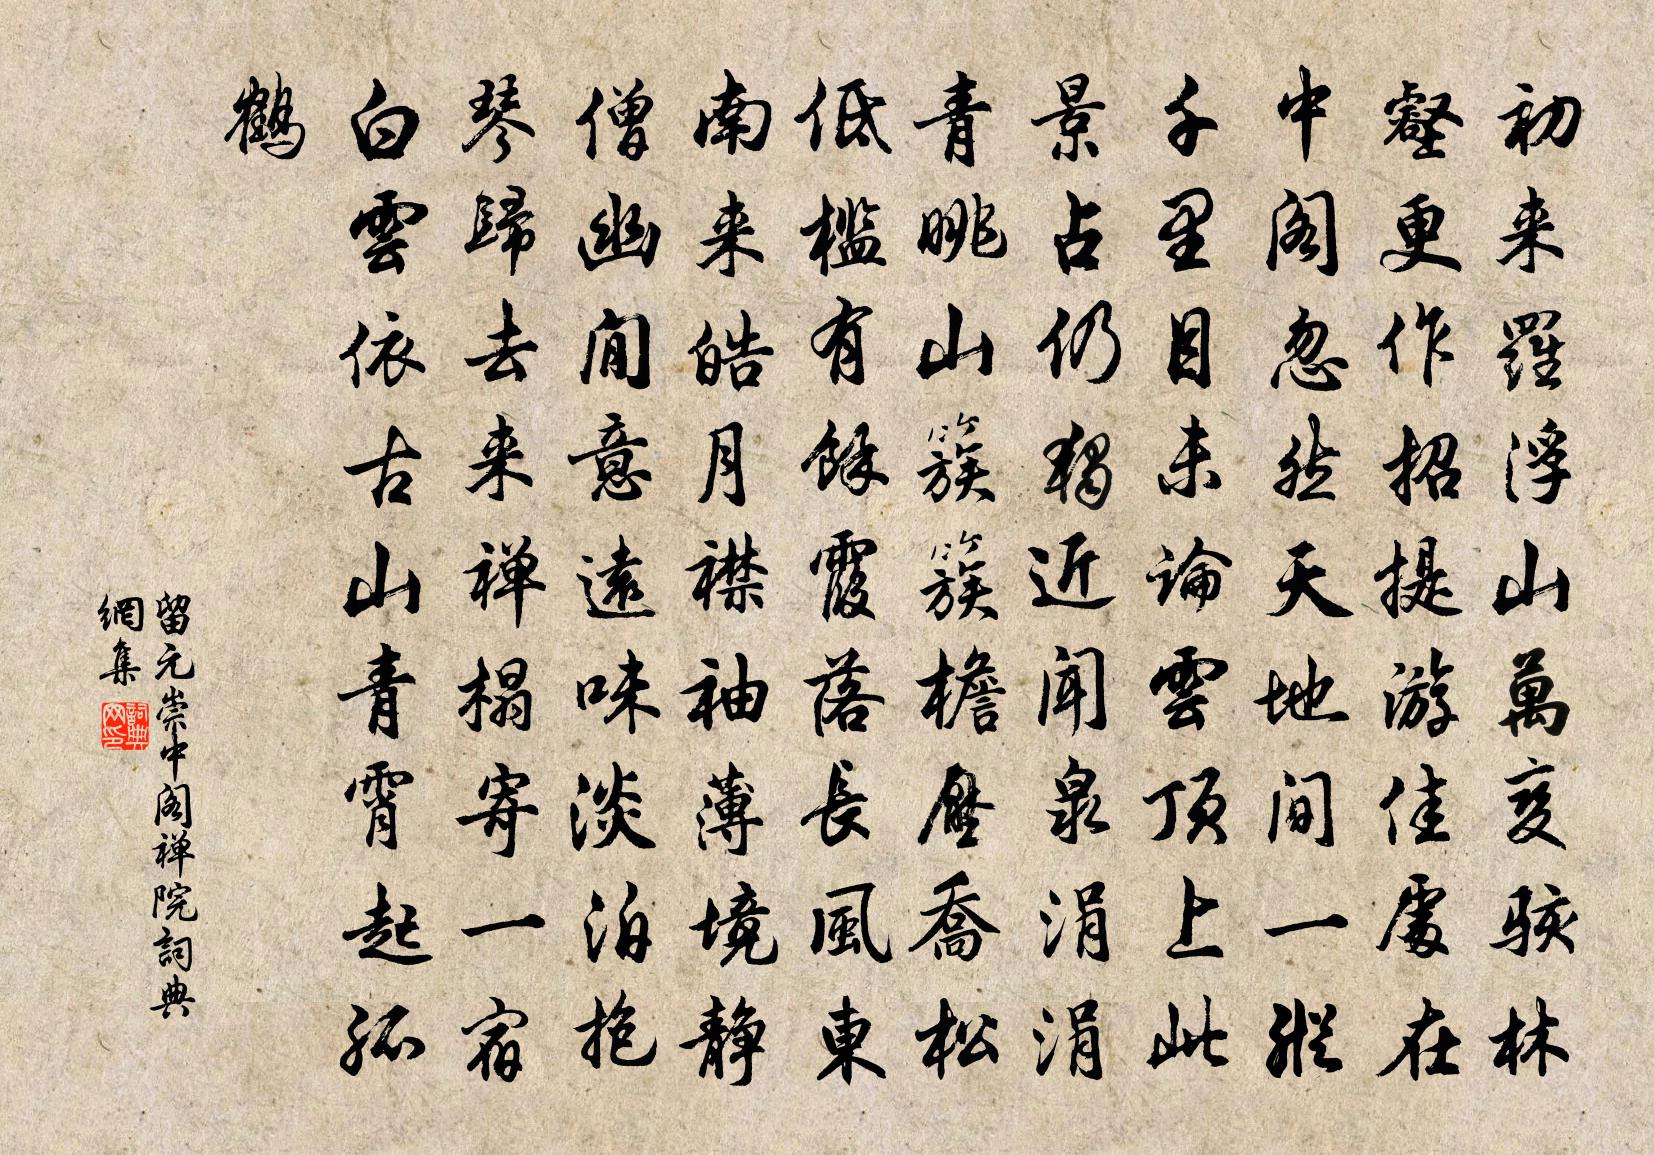 初来羅浮山萬变駭林
壑更作招提游佳處在
中阁忽然天地间一縱
千里目未論雲頂上此
景占仍獨近聞泉涓涓
青眺山簇簇檐壓喬松
低槛有餘霞落長風東
南来皓月襟袖薄境静
僧幽闲意遠味淡泊抱
琴歸去来禅榻寄一宿
白雲依古山青霄起孤
鶴
留元崇中阁禅院詞典
網集
詞典网印